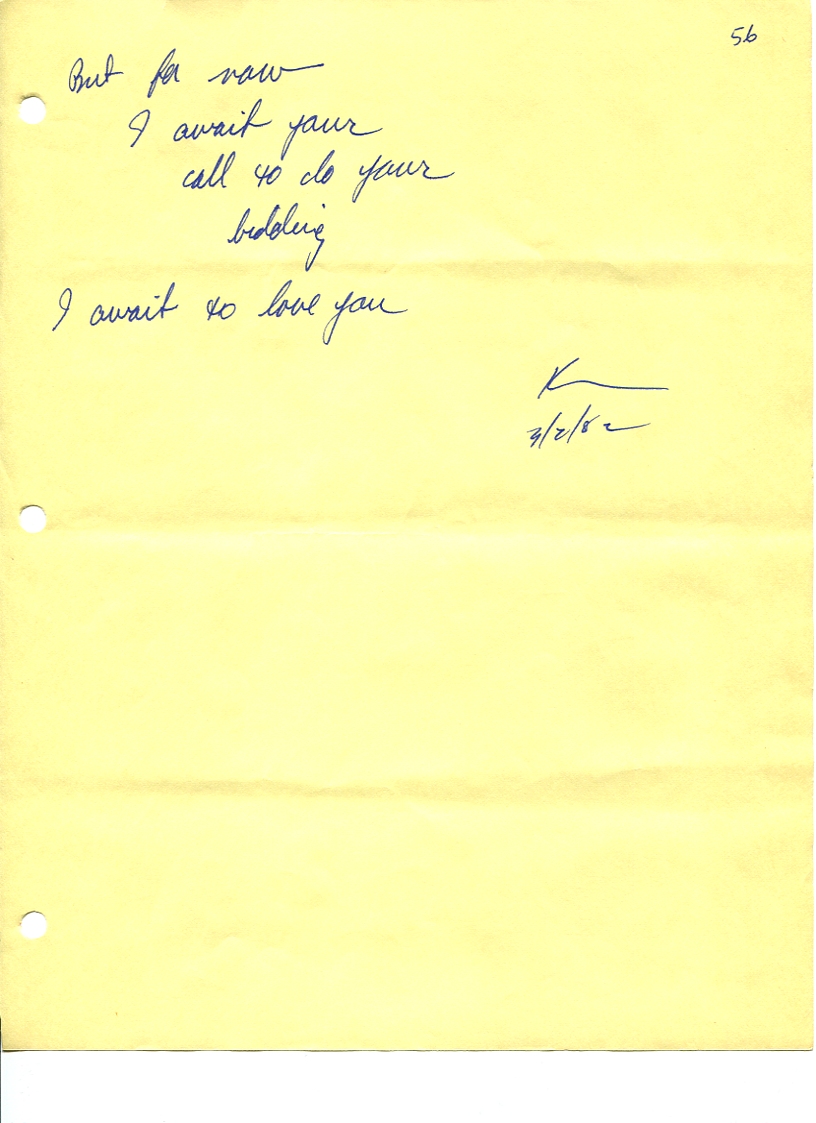 56
But for now
I await your
call to do your
bidding
I await to love you
K
3/2/82